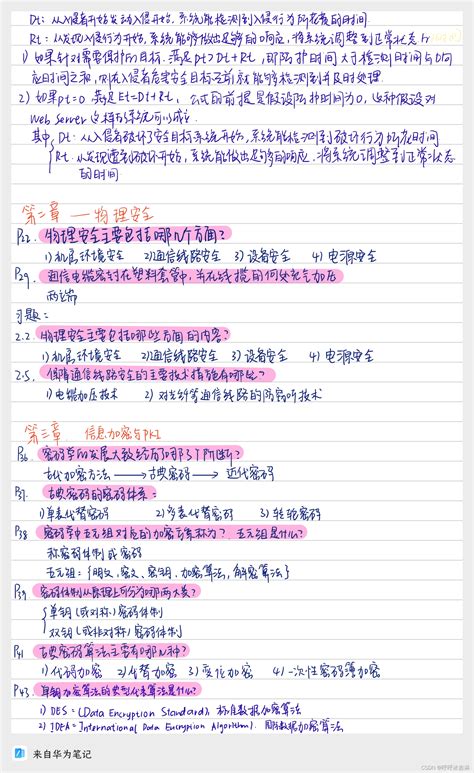 Dt: 从入侵者开始发动入侵开始,系统能检测到入侵行为所花费的时间
Rt: 从发现入侵行为开始,系统能够做出足够的响应,将系统调整到正常状态的
1) 如果针对需要保护的目标,满足Pt>Dt+Rt,即防护时间大于检测时间与响
应时间之和,则入侵者危害安全目标之前就能够检测到并及时处理
2) 如果Pt=0 满足Et=Dt+Rt, 公式的前提是假设防护时间为0,这种假设对
Web Server这样的系统可以成立.
其中 Dt: 从入侵者破坏了安全目标系统开始,系统能检测到破坏行为所花时间
Rt: 从发现遭到破坏开始,系统能做出足够的响应.将系统调整到正常状态
的时间.
第二章 — 物理安全
P22. 物理安全主要包括哪几个方面?
1) 机房环境安全 2) 通信线路安全 3) 设备安全 4) 电源安全
P29. 通信电缆密封在塑料套管中,并在线缆的何处充气加压
两端
习题:
2.2. 物理安全主要包括哪些方面的内容?
1) 机房环境安全 2) 通信线路安全 3) 设备安全 4) 电源安全
2.5. 保障通信线路安全的主要技术措施有哪些?
1) 电缆加压技术 2) 对光纤等通信线路的防窃听技术
第三章 信息加密与PKI
P36. 密码学的发展大致经历了哪3个阶段?
古代加密方法 → 古典密码 → 近代密码
P37. 古典密码的密码体系:
1) 单表代替密码 2) 多表代替密码 3) 转轮密码
P38 密码学中五元组对应的加密方案称为? 五元组是什么?
称密码体制或密码
五元组:{明文、密文、密钥、加密算法,解密算法}
P39. 密码体制从原理上可分为哪两大类?
单钥(或对称)密码体制
双钥(或非对称)密码体制
P41 古典密码算法主要有哪几种?
1) 代码加密 2) 代替加密 3) 变位加密 4) 一次性密码簿加密
P43. 单钥加密算法的典型代表算法是什么?
1) DES = (Data Encryption Standard), 标准数据加密算法
2) IDEA = International Data Encryption Algorithm). 国际数据加密算法
来自华为笔记